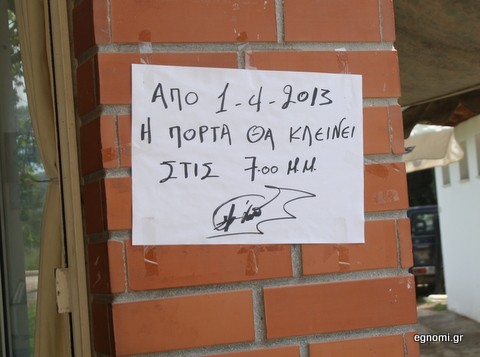 ΑΠΟ 1-4-2013
Η ΠΟΡΤΑ ΘΑ ΚΛΕΙΝΕΙ
ΣΤΙΣ 7.00 Μ.Μ.
egnomi.gr